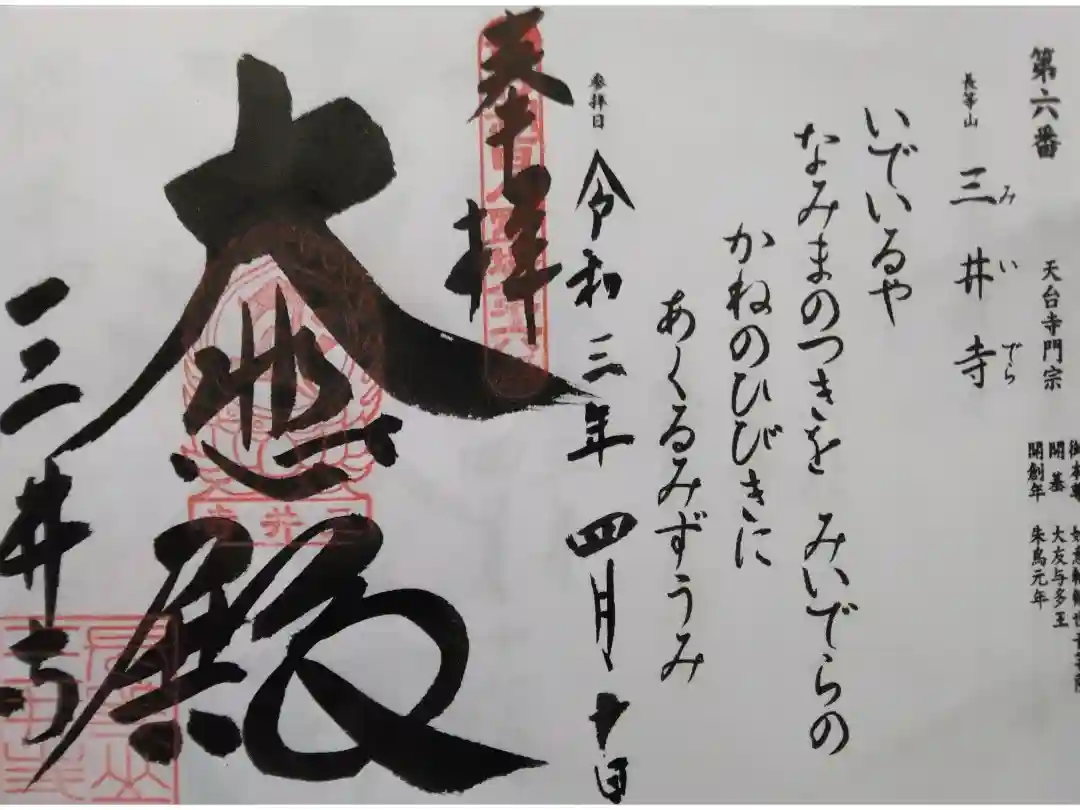 第六番
長等山 三井寺
みいでら
天台寺門宗
開基 大友与多王
開創年 朱鳥元年
いでいるや
なみまのつきを みいでらの
かねのひびきに
あくるみずうみ
参拝日 令和三年 四月十日
奉拝
大悲殿
三井寺
三井寺